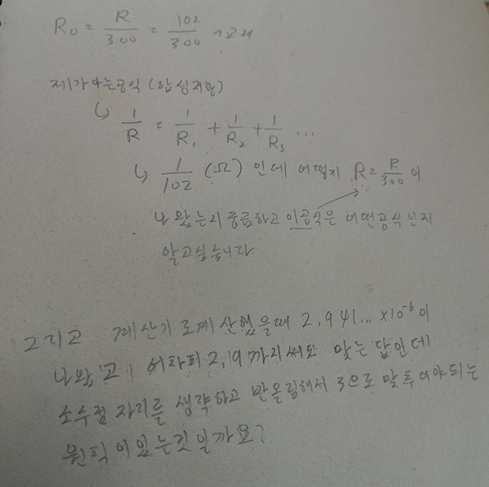 R₀ = R/300 = 102/300 → 교재
제가 아는 공식 (합성저항)
↳ 1/R = 1/R₁ + 1/R₂ + 1/R₃ ...
↳ 1/102 (Ω) 인데 어떻게 R = R/300 이
나왔는지 궁금하고 이공식은 어떤공식인지
알고싶습니다.
그리고 계산기로계산했을때 2,941... x10⁻⁶이
나왔고 어차피 2,9까지써도 맞는답인데
소수점 자리를 생략하고 반올림해서 3으로 맞투어야되는
원칙이있는것일까요?